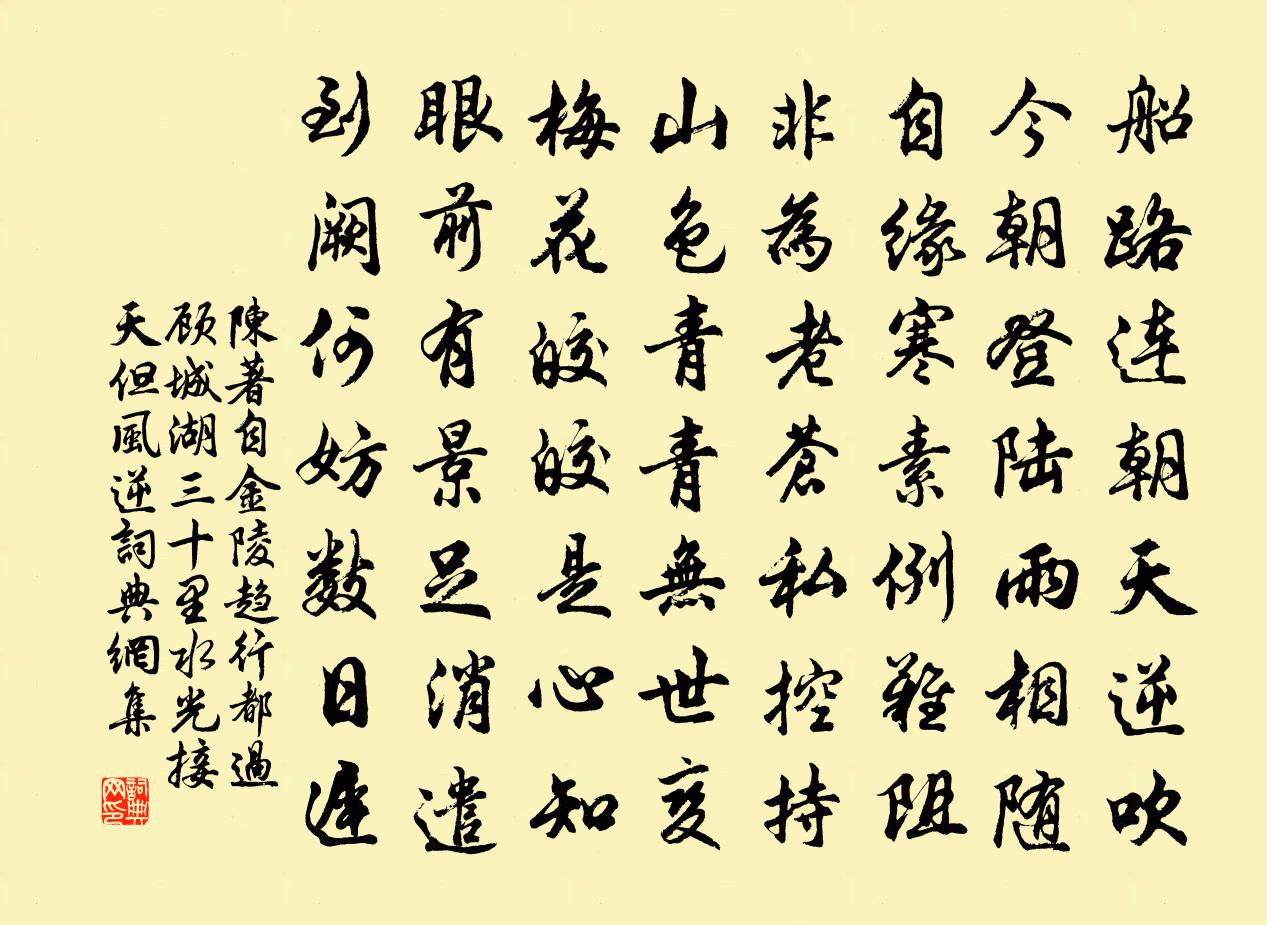 船路连朝天逆吹
今朝登陆雨相随
自缘寒素例难阻
非為老蒼私控持
山色青青無世变
梅花皎皎是心知
眼前有景足消遣
到阙何妨数日遲
陳著自金陵趋行都過
顾城湖三十里水光接
天但風逆詞典網集
詞典网印